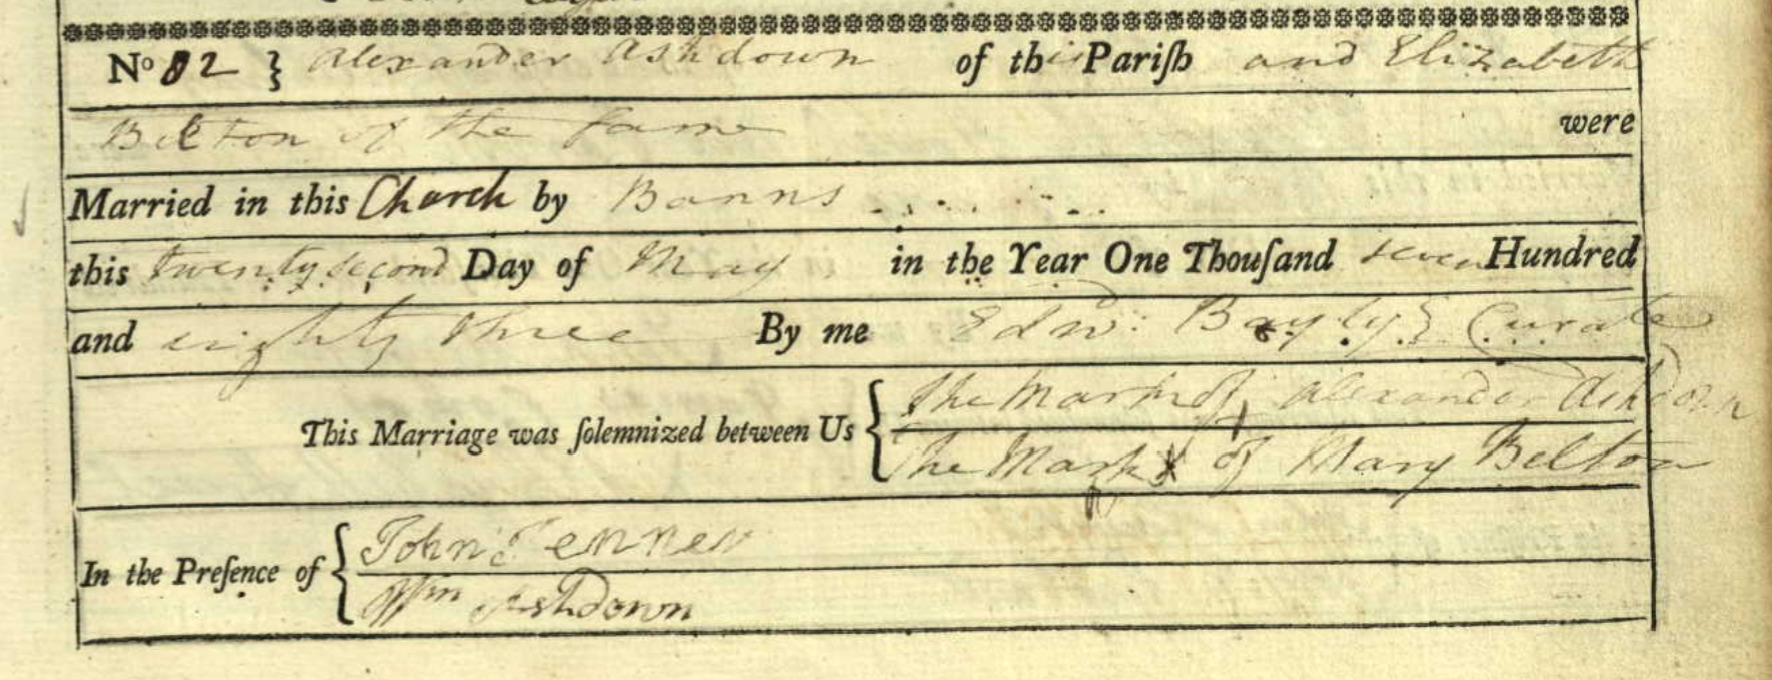 No 82 } Alexander Ashdown of this Pariſh and Elizabeth
Belton of the ſame were
Married in this Church by Banns
this twenty second Day of May in the Year One Thouſand seven Hundred
and eighty three By me Edw: Bayly } Curate
This Marriage was ſolemnized between Us { The Mark of Alexander Ashdown
The Mark X of Mary Belton
In the Preſence of { John Jenner
Wm Ashdown